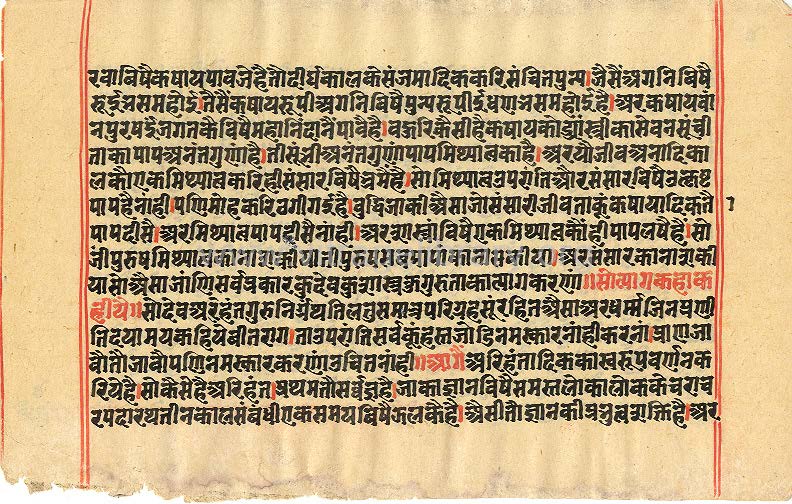 रवाविषैकषायपावजेहैतौदीर्घकालकेसंजमादिककरिसंचितपुन्य।जैसैंअगनिविषै
रूईभसमहोई।तैसैकषायरुपीअगनिविषैपुन्यरूपीईंधणभसमहोईहै।अरकषायवां
नपुरषईजगतकैविषैमहानिंदानैपावैहै।बहुरिकैसीहैकषायकोड्यांस्त्रीकासेवनसूंभी
ताकापापअनंतगुणांहै।तीसूंभीअनंतगुणांपापमिथ्यात्वकाहै।अरयौजीवअनादिका
लकौएकमिथ्यात्वकरिहीसंसारविषैभ्रमैहै।सोमिथ्यात्वउपरांतिऔरसंसारविषैउत्कष्ट
पापहैनांही।पणिमोहकरिठगीगईहै।बुद्धिजाकीऐसाजोसंसारीजीवताकूंकषायादिकतौ
पापदीसै।अरमिथ्यात्वपापदीसैनांही।अरशास्त्रांविषैएकमिथ्यात्वकौंहीपापलषैहै।सो
जींपुरुषमिथ्यात्वकानासकीया अरसंसारकानाशकी
यासाऐसाजांणिसर्वप्रकारकुदेवकुशास्त्रकुगुरुताकात्यागकरणां॥सोत्यागकहाक
हीये॥सोदेवअरहंतगुरुनिर्ग्रंथतिलतुसमात्रपरिग्रहसंरहितऐसाअरधर्म्मजिनप्रणी
तिदयामयकहियेबीतराग।ताउपरांतिसर्वकूंहस्तजोडिनमस्कारनांहीकरनां।प्राणजा
वौतौजावौपणिनमस्कारकरणांउचितनांही॥आगैंअरिहंतादिककास्वरूपवर्णनक
रियेहै।सोकैसेहैअरिहंत।प्रथमतौसर्वज्ञहै।जाकाज्ञानविषैसमस्तलोकालोककेचराच
रपदारथतीनकालसंबंधीएकसमयविषैझलकैहै।ऐसीतौज्ञानकीप्रभुत्वशक्तिहै।अर